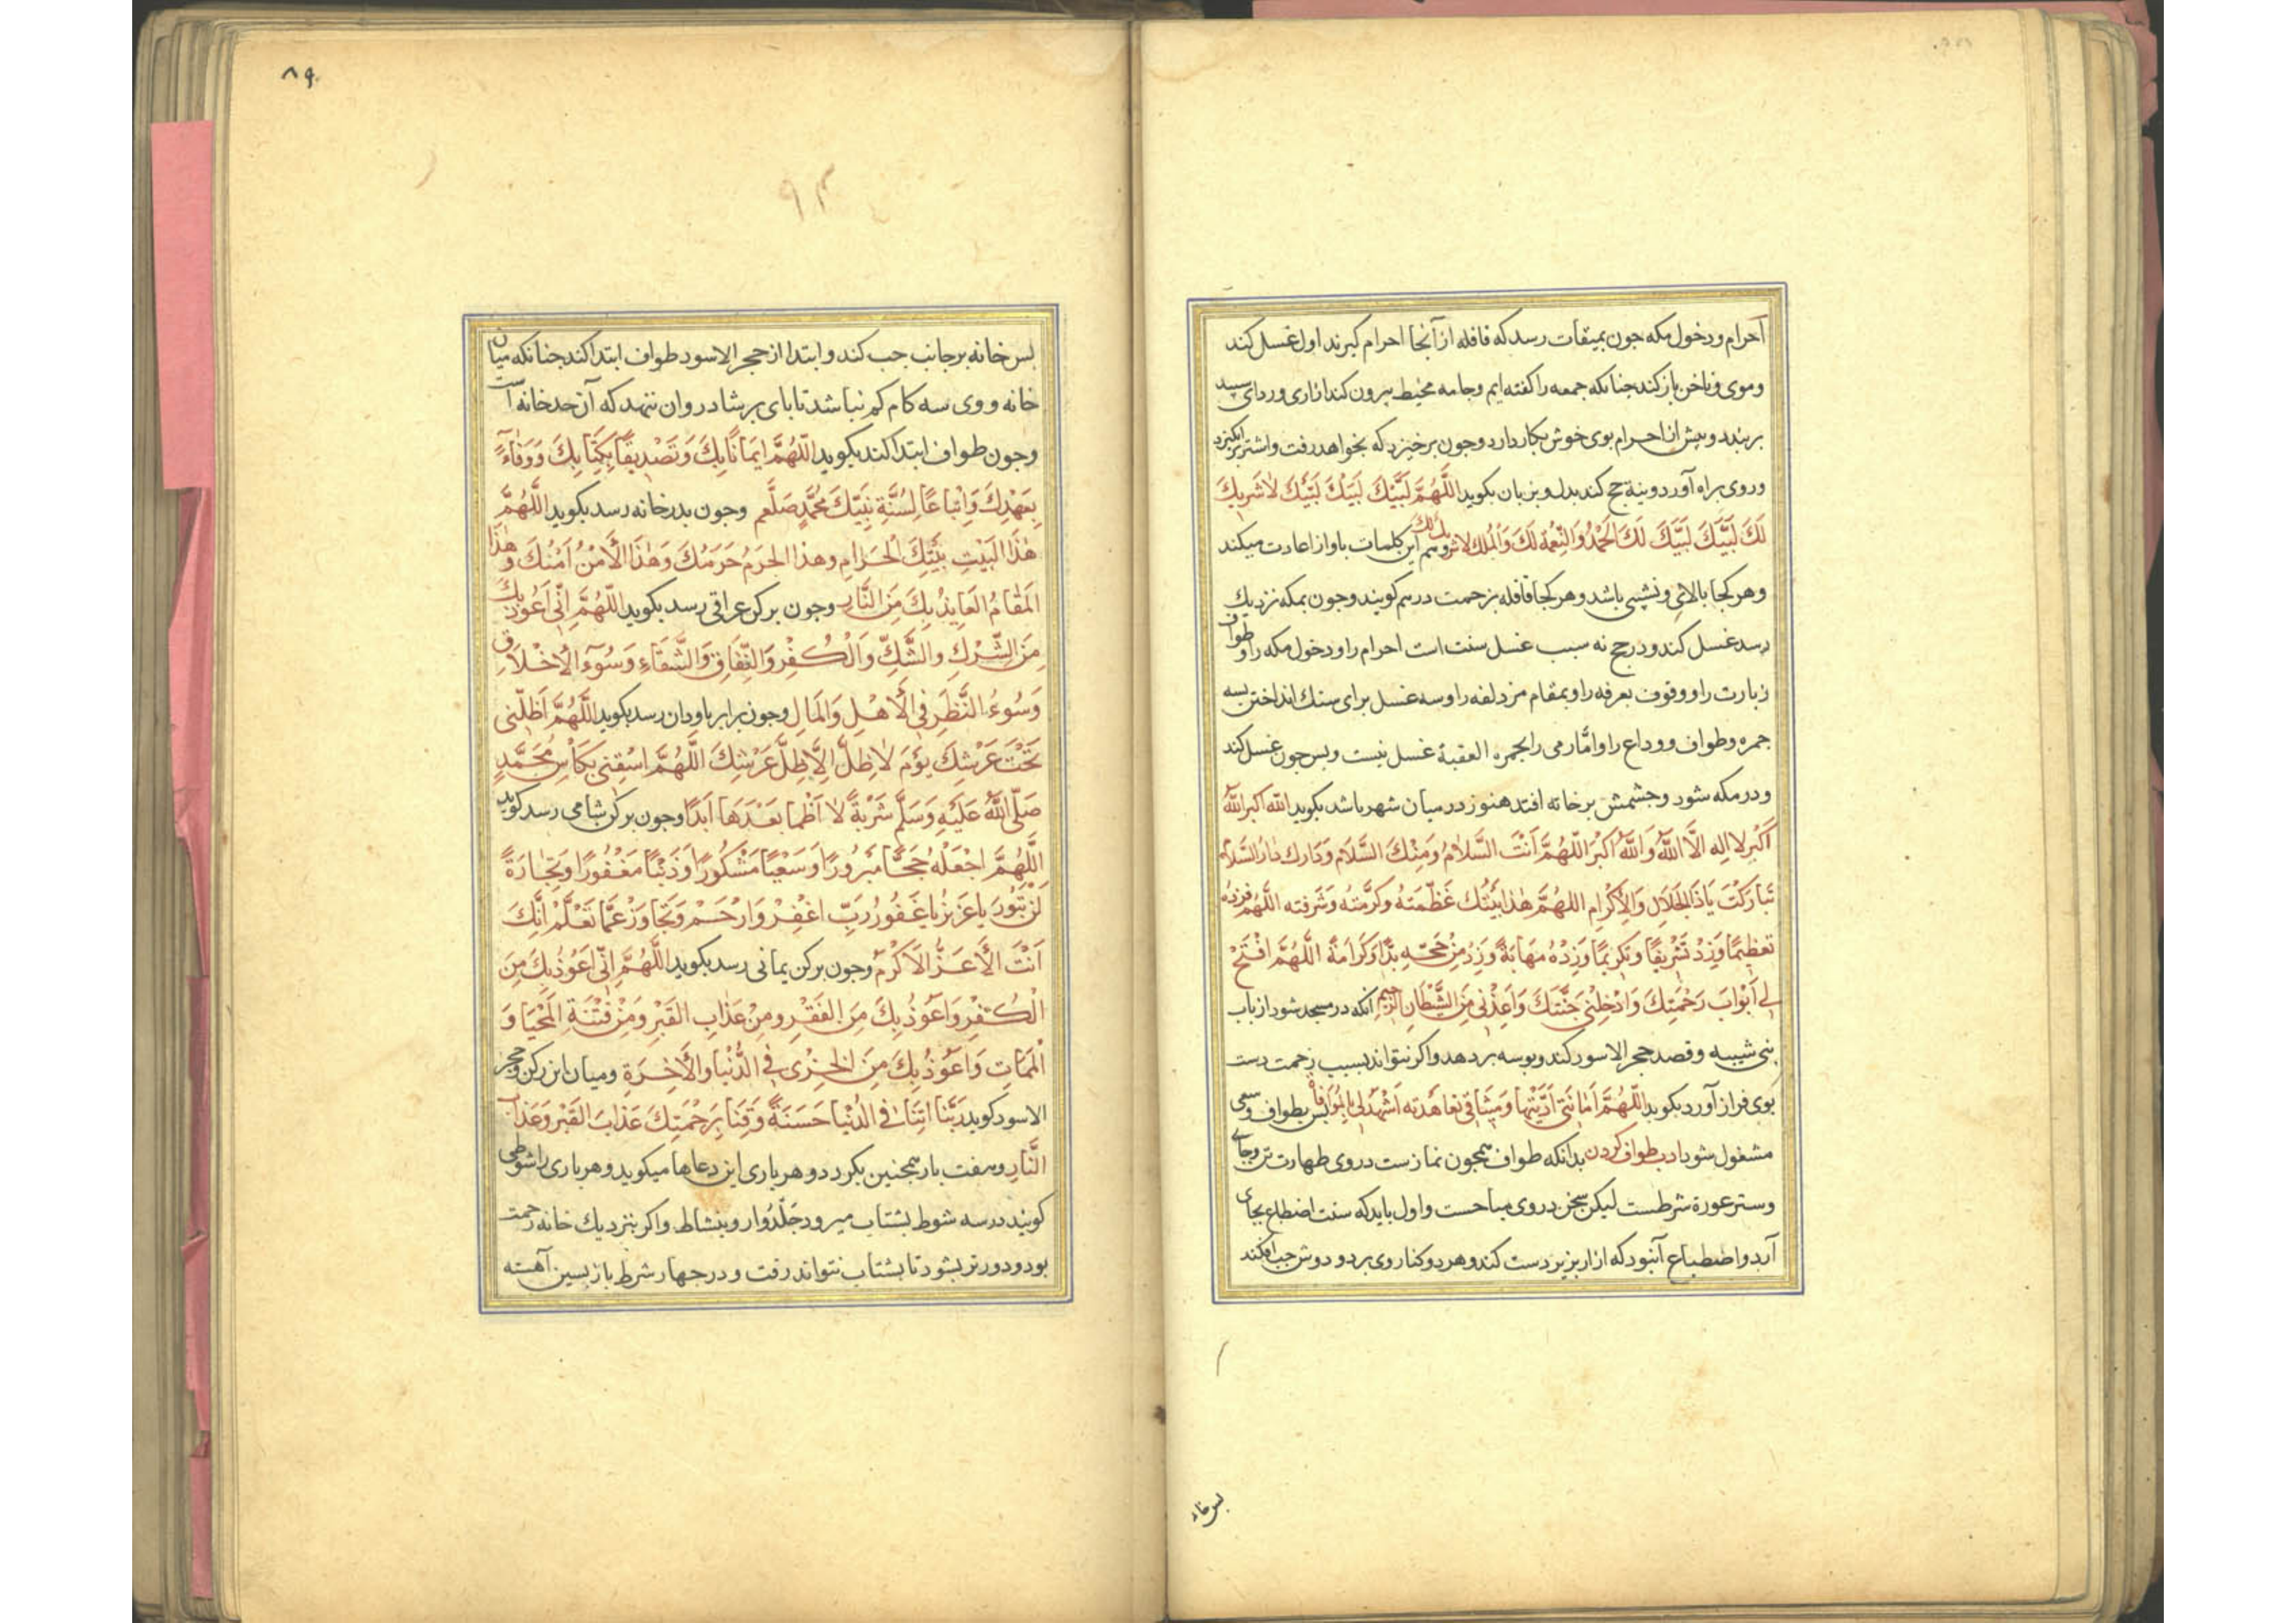 احرام و دخول مکه جون بمیقات رسد که قافله از آنجا احرام کیرند اول غسل کند
وموی و ناخن باز کند جنانکه جمعه را کفته ایم وجامه مخیط بیرون کند ازاری وردای سبید
بربندد و بیش از احرام بوی خوش بکار دارد وجون برخیزد که بخواهد رفت واشتر برانکیزد
وروی براه آورد ونیة حج کند بدل وبزبان بکوید اللَّهُمَّ لَبَّيْكَ لَبَّيْكَ لَبَّيْكَ لَاشَرِيكَ
لَكَ لَبَّيْكَ لَبَّيْكَ لَكَ الْحَمْدُ وَالنِّعْمَة لَكَ وَالْمُلْك لاشریك لك وهم این کلمات باواز اعادت میکند
وهر کجا بالائی ونشیبی باشد وهر کجا قافله بزحمت درهم کویند وجون بمکه نزدیك
رسد غسل کند ودر حج نه سبب غسل سنت است احرام را ودخول مکه را وطواف
زیارت را ووقوف بعرفه را وبمقام مزدلفه را وسه غسل برای سنك انداختن بسه
جمره وطواف ووداع را وامّا رمی را بجمره العقبة غسل نیست وبس جون غسل کند
ودر مکه شود وجشمش بر خانه افتد هنوز در میان شهر باشد بکوید الله اکبر اللّٰه
اَكْبَر لا اله الَّا اللّٰه وَاللّٰه اَكْبَر اللّهُمَّ اَنْتَ السَّلَامُ وَمِنْكَ السَّلَام وَدَارك دَارُ السَّلَام
تَبَارَكْتَ يَاذَا الْجَلَالِ وَالْاِكْرَامِ اللهُمَّ هٰذا بَيْتُك عَظَّمتَهُ وكرَّمتُه وشَرفته اللَّهُمَّ فزدْهُ
تعظِيمًا وَزِدْ تَشْرِيفًا وتَكرِيمًا وَزِدْهُ مَهَابَةً وَزِدْ مِنْ حَجِّهِ بِرًّا وَكَرَامَةً اللَّهُمَّ افْتَحْ
لِي اَبْوَابَ رَحْمَتِكَ وَادْخِلْنِي جَنَّتَكَ وَاَعِذْنِي مِنَ الشَّيْطَانِ الرَّجِيمِ آنکه در مسجد شود از باب
بنی شیبه وقصد حجر الاسود کند وبوسه بر دهد واکر نتواند بسبب زحمت دست
بوی فراز آورد بکوید اللّهُمَّ اَمَانَتِي اَدَّيْتُهَا وَمِيثَاقِي تعَاهَدته اَشْهَد لِي بالْمُوَافَاة بس بطواف وسعی
مشغول شود ادب طواف کردن بدانکه طواف همجون نمازست در وی طهارت تن وجای
وستر عورة شرطست لیکن سخن در وی مباحست واول باید که سنت اضطباع بجای
آرد واضطباع آنبود که ازار بزیر دست کند وهر دو کنار وی بر دو دوش جب افکند
بس خانه
۸۹
۹۳
بس خانه بر جانب جب کند و ابتدا از حجر الاسود طواف ابتدا کند جنانکه میان
خانه ووی سه کام کم نباشد تا بای بر شادروان ننهد که آن حد خانه است
وجون طواف ابتدا کند بکوید اللّهُمَّ اِيمَانًا بِكَ وَتَصْدِيقًا بِكِتَابِكَ وَوَفَاءً
بِعَهْدِكَ وَاتْبَاعًا لِسُنَّةِ نَبِيّكَ مُحَمَّدٍ صَلَّعم وجون بدر خانه رسد بکوید اللَّهُمَّ
هٰذَا البَيْتِ بَيْتِكَ الْحَرَامِ وهذا الحَرَمُ حَرَمُكَ وَهٰذَا الْأَمْنُ اَمْنُكَ وَهٰذَا
المَقَامُ العَايِذُ بِكَ مِنَ النَّارِ وجون بر کن عراقی رسد بکوید اللّهُمَّ اِنِّي اَعُوذُ بِكَ
مِنَ الشِّرْكِ وَالشَّكِّ وَالْكُفْرِ وَالنِّفَاقِ وَالشَّقَاءِ وَسُوَءِ الْاَخْلَاقِ
وَسُوءُ النَّظَرِ فِي الْأَهْلِ وَالمَالِ وجون برابر ناودان رسد بکوید اللَّهُمَّ اَظِلَّنِي
تَحْتَ عَرْشِكَ يَوْمَ لَا ظِلَّ اِلَّا ظِلَّ عَرْشِكَ اللَّهُمَّ اسْقِنِي بِكَأْسِ مُحَمَّدٍ
صَلَّى اللّٰهُ عَلَيْهِ وَسَلَّمَ شَرْبَةً لَا اَظْمَا بَعْدَهَا اَبَدًا وجون بر کن شامی رسد کوید
اللَّهُمَّ اجْعَلْهُ حَجًّا مَبْرُورًا وَسَعْيًا مَشْكُورًا وَذَنْبًا مَغْفُورًا وَتِجَارَةً
لَنْ تَبُورَ يا عَزِيزُ يا غَفُورُ رَبِّ اغْفِرْ وَارْحَمْ وَتَجَاوَزْ عَمَّا تَعْلَمْ اِنَّكَ
اَنْتَ الْأَعَزُّ الْاَكْرَم وجون بر کن یمانی رسد بکوید اللَّهُمَّ اِنِّي اَعُوذُ بِكَ مِنَ
الْكُفْرِ وَاَعُوذُ بِكَ مِنَ الفَقْرِ ومِنْ عَذَابِ القَبْرِ وَمِنْ فِتْنَةِ الْمَحْيَا وَ
الْمَمَاتِ وَاَعُوذُ بِكَ مِنَ الْخِزْىِ فِي الدُّنْيَا وَالْاَخِرَةِ ومیان این رکن وحجر
الاسود کوید رَبَّنَا اتِنَا فِي الدُّنْيَا حَسَنَةً وَقِنَا بِرَحْمَتِكَ عَذَابَ القَبْرِ وَعَذَابَ
النَّارِ وهفت بار همجنین بکردد وهر باری این دعاها میکوید وهر باری را شوطی
کویند در سه شوط بشتاب میرود جَلْدوار وبنشاط واکر بنزدیك خانه زحمت
بود ودورتر بشود تا بشتاب نتواند رفت ودر جهار شرط باز بسین آهسته